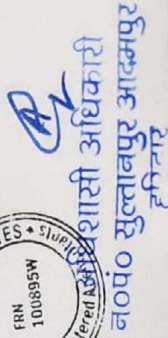 FRN
100895W
अधिशासी अधिकारी
न०पं० सुल्तानपुर आदमपुर
हरिद्वार